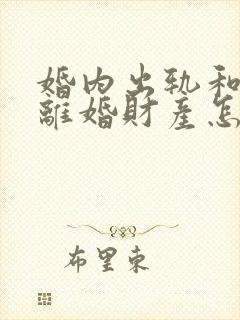 婚内出轨和
離婚財產怎
布里東